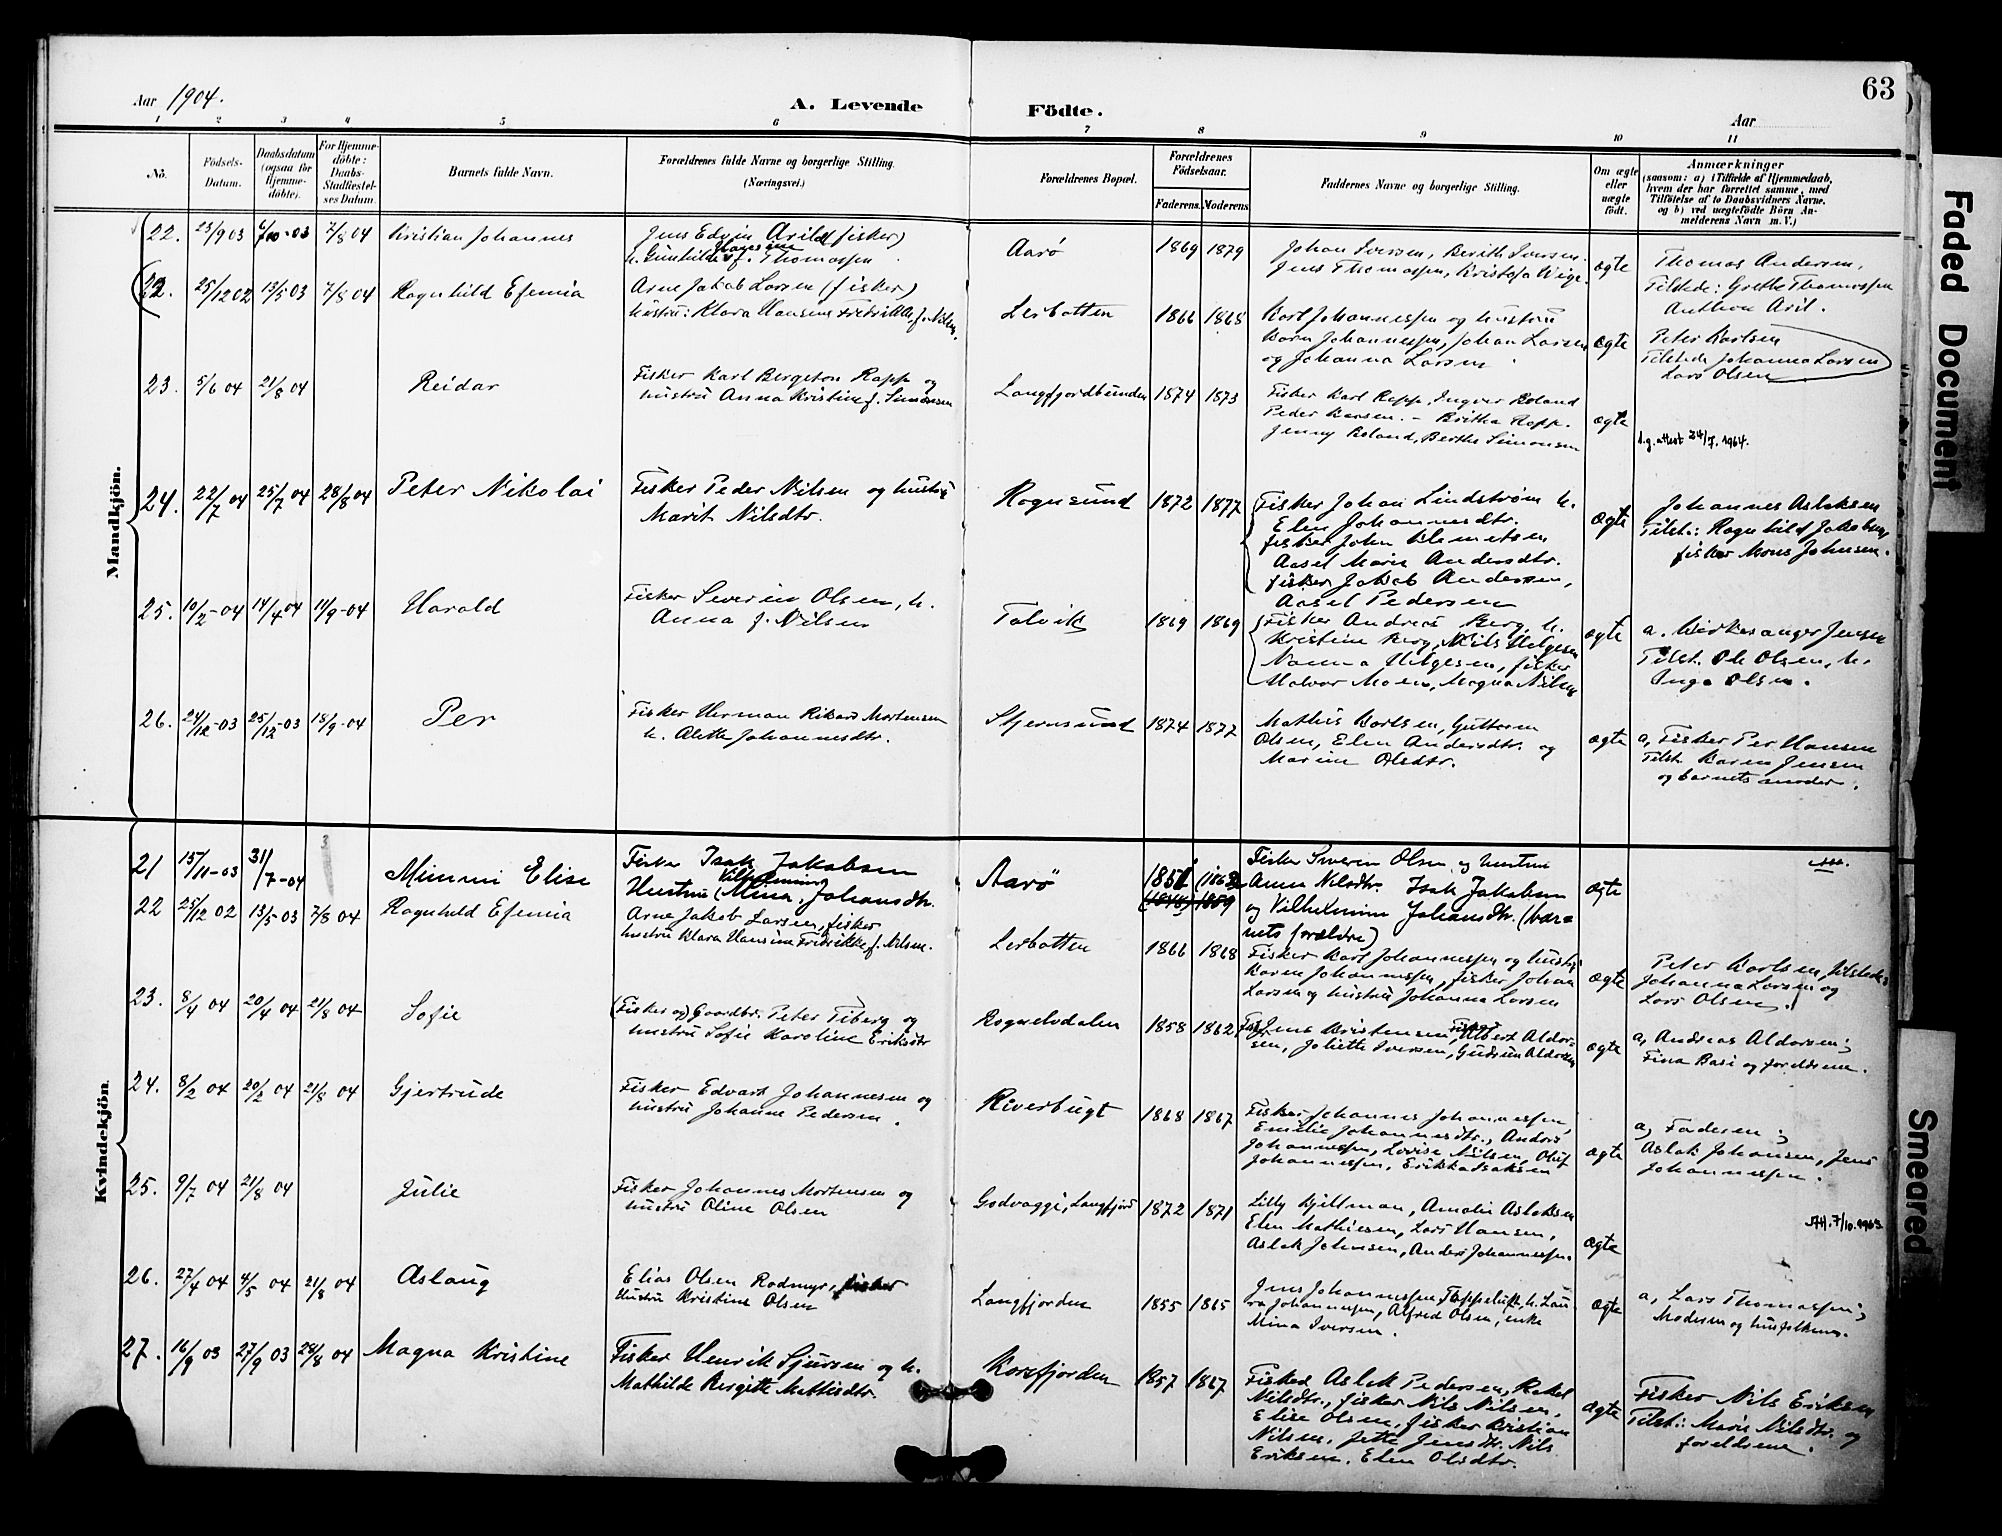 63
Aar 1904.
A. Levende Födte.
Aar
1 2 3 4 5 6 7 8 9 10 11
No.
Födsels-Datum.
Daabsdatum (ogsaa for Hjemme-döbte).
For Hjemme-döbte: Daabs-Stadfæstel-ses Datum.
Barnets fulde Navn.
Forældrenes fulde Navne og borgerlige Stilling.
(Næringsvei.)
Forældrenes Bopæl.
Forældrenes Födselsaar.
Faderens. Moderens.
Faddernes Navne og borgerlige Stilling.
Om ægte eller uægte födt.
Anmærkninger
(saasom: a) i Tilfælde af Hjemmedaab,
hvem der har forrettet samme, med
Tilföielse af to Daabsvidners Navne,
og b) ved uægtefödte Börn An-
melderens Navn m. V.)
Mandkjön.
22. 23/9 03 4/10-03 7/8 04 Kristian Johannes
Jens Edvin Arild (fisker)
h. Gunhilde Hansine f. Thomassen
Aarø 1869 1879
Johan Iversen, Berith Iversen
Jens Thomassen, Kristofa Wige.
ægte
Thomas Andersen,
Tilstede: Grethe Thomassen
Anthon Aril.
22. 25/12 02 13/5 03 7/8 04 Ragnhild Efemia
Arne Jakob Larsen (fisker)
hustru: Klara Hansine Fredrikke f. Nilsen.
Lerbotten 1866 1868
Karl Johannessen og hustru
Karn Johannessen, Johan Larsen
og Johanna Larsen.
ægte
Peter Karlsen
Tilstede Johanna Larsen
Lars Olsen
23. 5/6 04 21/8 04 Reidar
Fisker Karl Bergeton Rapp og
hustru Anna Kristine f. Simonsen
Langfjordbunden 1874 1873
Fisker Karl Rapp, Ingver Boland
Peder Larsen. - Britha Rapp.
Jenny Boland, Berthe Simonsen
ægte
d.g. attest 24/7. 1964.
24. 22/7 04 25/7 04 28/8 04 Peter Nikolai
Fisker Peder Nilsen og hustru
Marit Nilsdtr.
Rognsund 1872 1877
Fisker Johan Lindstrøm h.
Elen Johannesdtr.
fisker John Klemetsen
Aasel Marie Andersdtr.
fisker Jakob Andersen,
Aasel Pedersen
ægte
Johannes Aslaksen
Tilst.: Ragnhild Jakobsen,
fisker Mons Johnsen.
25. 10/2-04 14/4 04 11/9-04 Harald
Fisker Severin Olsen, h.
Anna f. Nilsen
Talvik 1869 1869
Fisker Andreas Berg, h.
Kristine Berg, Nils Helgesen
Nanna Helgesen, fisker
Halvor Moen, Magna Nilsen
ægte
a. Kirkesanger Jensen
Tilst. Ole Olsen, h.
Inga Olsen.
26. 24/12-03 25/12-03 18/9-04 Per
Fisker Herman Rikard Mortensen
h. Alette Johannesdtr.
Stjernsund 1874 1877
Mathis Karlsen, Guttorm
Olsen, Elen Andersdtr. og
Marine Olsdtr.
ægte
a, Fisker Per Hansen
Tilst. Karen Jensen
og barnets moder.
Kvindekjön.
21 15/11-03 31/7-04 Mimmi Elise
Fisker Isak Jakobsen
Hustru (Mina, Vilhelmine) Johansdtr.
Aarø 1851 (1862
(1848) 1859
Fisker Severin Olsen og hustru
Anna Nilsdtr. Isak Jakobsen
og Vilhelmine Johansdtr. (bar-
nets forældre)
ægte
22 25/12 02 13/5-03 7/8 04 Ragnhild Efemia
Arne Jakob Larsen, fisker
hustru Klara Hansine Fredrikke f. Nilsen.
Lerbotten 1866 1868
Fisker Karl Johannessen og hustru
Karen Johannessen, fisker Johan
Larsen og hustru Johanna Larsen
ægte
Peter Karlsen, tilstede:
Johanna Larsen og
Lars Olsen.
23. 8/4 04 20/4 04 21/8 04 Sofie
(Fisker og) Gaardbr. Peter Tiberg og
hustru Sofie Karoline Eriksdtr
Rognelvdalen 1858 1862
Jens Kristensen, Fisker Albert Aldor-
sen, Joliette Iversen, Gudrun Aldorsen
ægte
a, Andreas Aldorsen;
Fina Basi og forældrene.
24. 8/2 04 20/2 04 21/8 04 Gjertrude
Fisker Edvart Johannesen og
hustru Johanne Pedersen.
Riverbugt 1868 1867
Fisker Johannes Johannessen,
Emilie Johannesdtr., Anders
Johannessen, Lovise Nilsen, Oluf
Johannessen, Erikka Isaksen
ægte
a, Faderen;
Aslak Johansen, Jens
Johannessen.
25. 9/7 04 21/8 04 Julie
Fisker Johannes Mortensen og
hustru Oline Olsen
Godvaggi, Langfjord 1872 1871
Lilly Kjillman, Amalie Aslaksen
Elen Mathisen, Lars Hansen,
Aslak Johnsen, Anders Johannessen.
ægte
AH. 7/10. 1963.
26. 27/4 04 4/5 04 21/8 04 Aslaug
Elias Olsen Rødmyr, fisker
Hustru Kristine Olsen
Langfjorden 1855 1865
Jens Johannessen, Tappeluft, h. Lau-
ra Johannessen, Alfred Olsen, enke
Mina Iversen.
ægte
a, Lars Thomassen;
Moderen og husfolkene.
27. 16/9 03 27/9 03 28/8 04 Magna Kristine
Fisker Henrik Sjursen og h.
Mathilde Birgitte Mathisdtr.
Korsfjorden 1857 1867
Fisker Aslak Pedersen, Rakel
Nilsdtr., fisker Nils Nilsen,
Elise Olsen, fisker Kristian
Nilsen, Jette Jensdtr. Nils
Eriksen, Elen Olsdtr.
ægte
Fisker Nils Eriksen
Tilst.: Marie Nilsdtr. og
forældrene.
Faded Document
Smeared